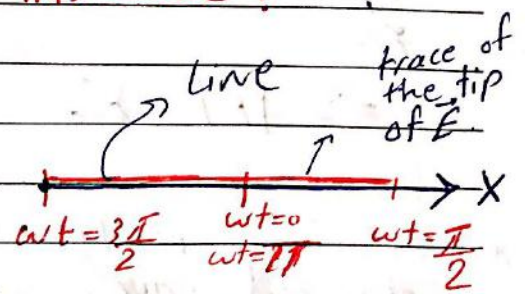 Line
trace of
the tip
of E⃗
X
ωt = 3π/2
ωt=0
ωt=2π
ωt = π/2